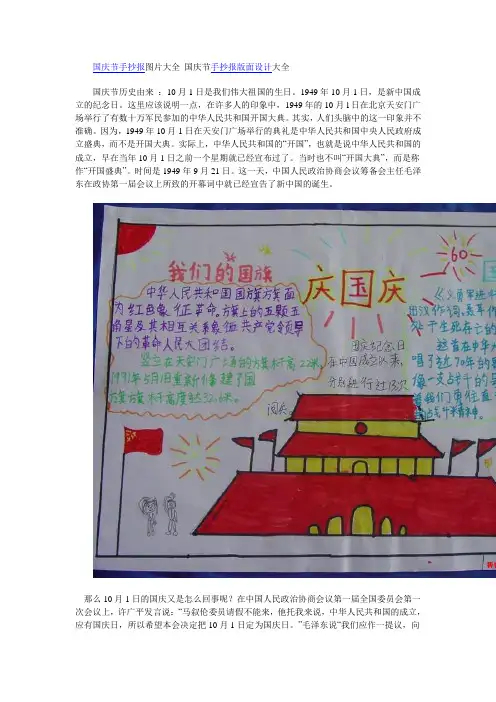 国庆节手抄报图片大全 国庆节手抄报版面设计大全
国庆节历史由来 ：10月1日是我们伟大祖国的生日。1949年10月1日，是新中国成
立的纪念日。这里应该说明一点，在许多人的印象中，1949年的10月1日在北京天安门广
场举行了有数十万军民参加的中华人民共和国开国大典。其实，人们头脑中的这一印象并不
准确。因为，1949年10月1日在天安门广场举行的典礼是中华人民共和国中央人民政府成
立盛典，而不是开国大典。实际上，中华人民共和国的“开国”，也就是说中华人民共和国的
成立，早在当年10月1日之前一个星期就已经宣布过了。当时也不叫“开国大典”，而是称
作“开国盛典”。时间是1949年9月21日。这一天，中国人民政治协商会议筹备会主任毛泽
东在政协第一届会议上所致的开幕词中就已经宣告了新中国的诞生。
我们的国旗
中华人民共和国国旗旗面
为红色象征革命,旗上的五颗五
角星及其相互关系象征共产党领导
下的革命人民大团结。
竖立在天安门广场的旗杆高22米,
1991年5月1日重新修建了国
旗旗杆高度达32.6米。
庆国庆
国庆纪念日
在中国成立以来,
分别进行过13次
阅兵。
60
国
义勇军进
田汉作词,聂耳作
处于生死存亡的
首在中华
唱了近70年的
像一支战斗的号
着我们勇往直
那么10月1日的国庆又是怎么回事呢？在中国人民政治协商会议第一届全国委员会第一
次会议上，许广平发言说：“马叙伦委员请假不能来，他托我来说，中华人民共和国的成立，
应有国庆日，所以希望本会决定把10月1日定为国庆日。”毛泽东说“我们应作一提议，向